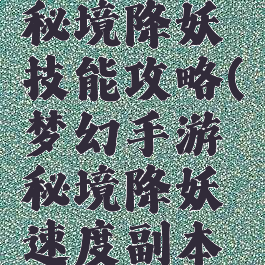 秘境降妖
技能攻略(
梦幻手游
秘境降妖
速度副本